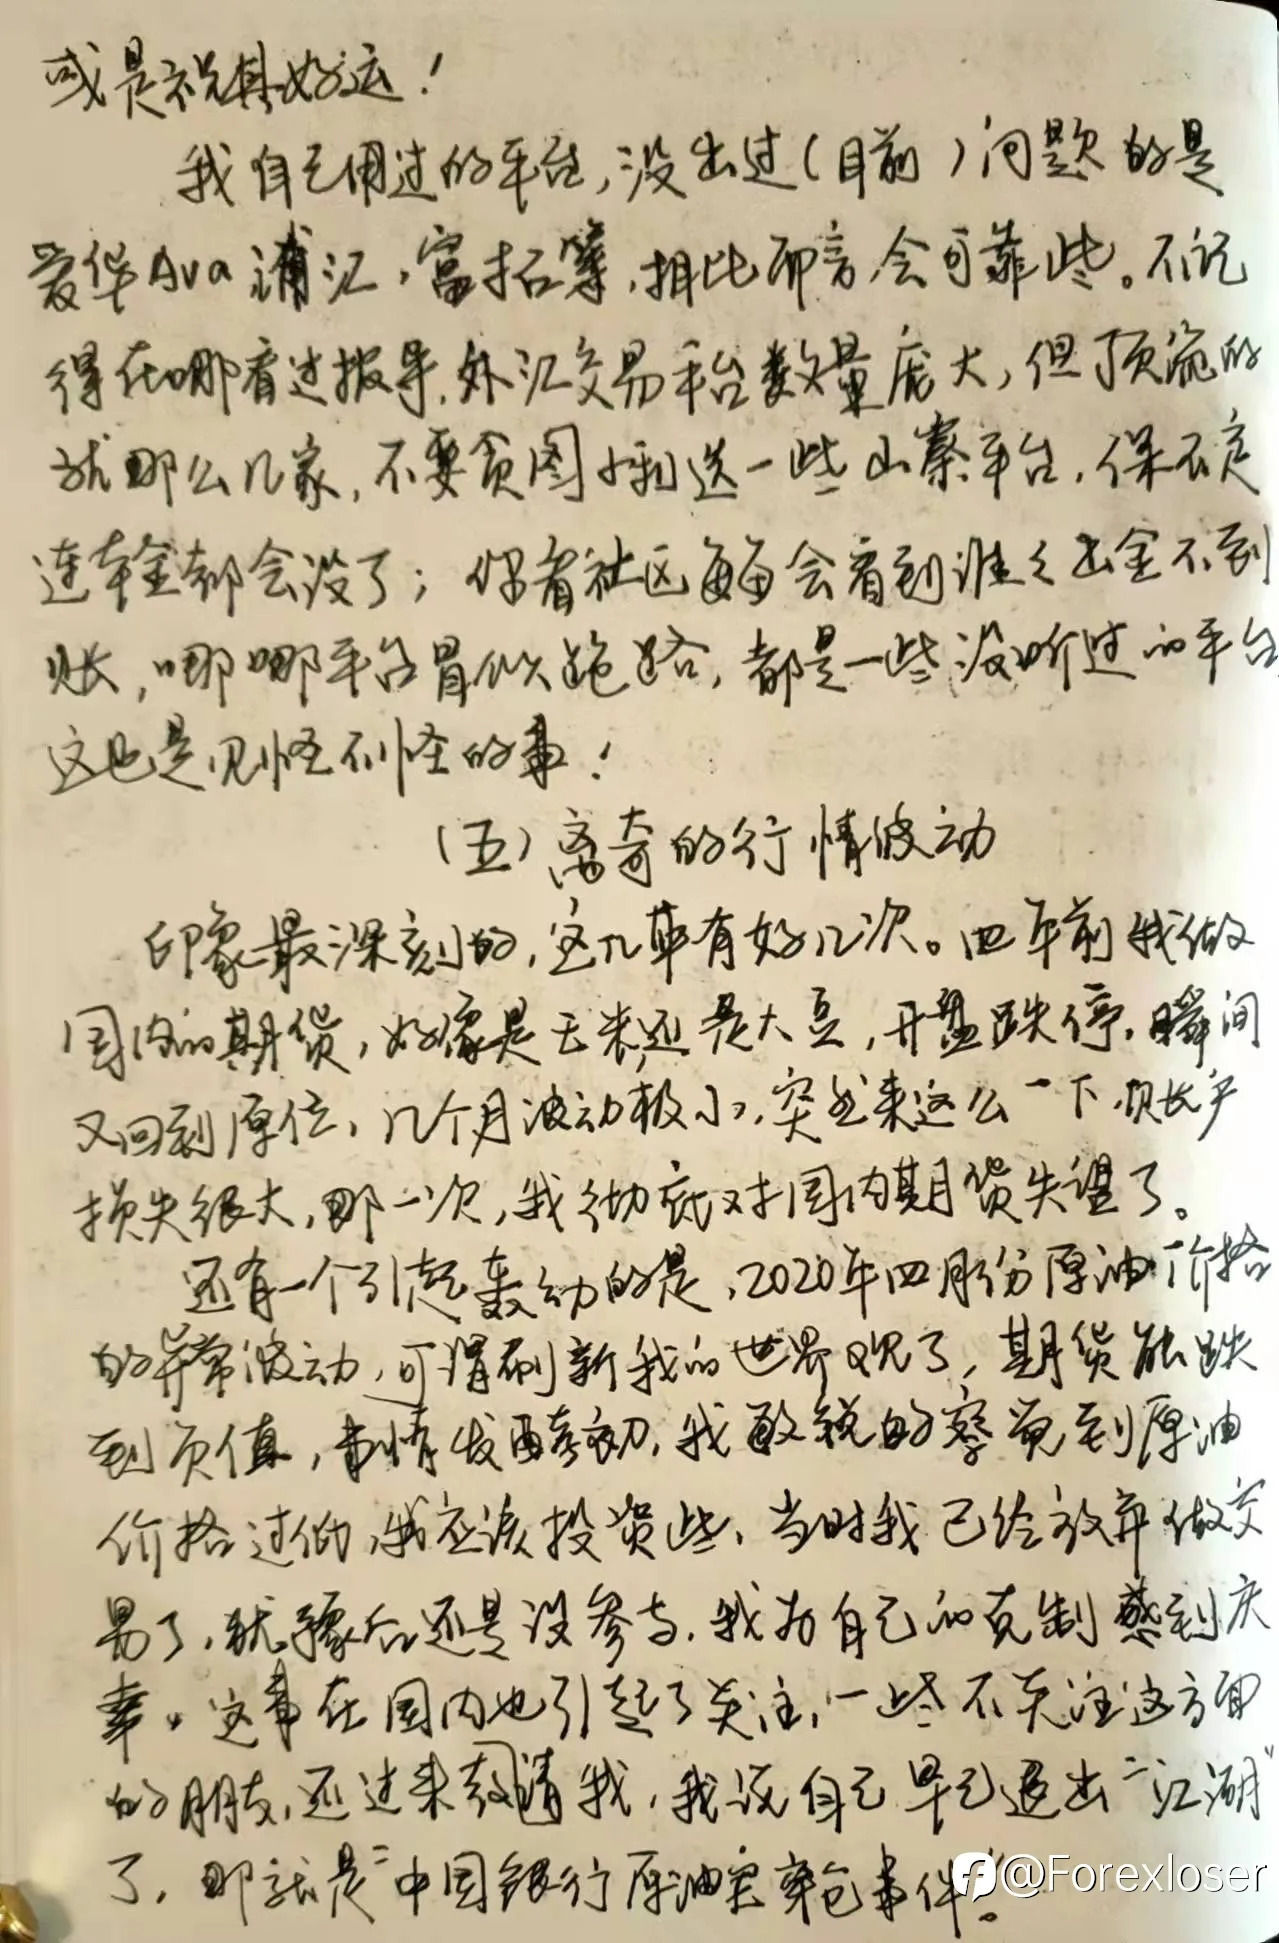 或是祝其好运！
我自己用过的平台，没出过（目前）问题的是
爱华Ava 浦汇，富拓等，相比而言会可靠些。不记
得在哪看过报导，外汇交易平台数量庞大，但顶流的
就那么几家，不要贪图小利选一些山寨平台，保不定
连本金都会没了；你看社区每每会看到谁谁出金不到
账，哪哪平台冒似跑路，都是一些没听过的平台
这也是见怪不怪的事！
（五）离奇的行情波动
印象最深刻的，这几年有好几次。四年前我做
国内的期货，好像是玉米还是大豆，开盘跌停，瞬间
又回到原位，几个月波动极小，突然来这么一下，财产
损失很大，那一次，我彻底对国内期货失望了。
还有一个引起轰动的是，2020年四月份原油价格
的异常波动，可谓刷新我的世界观了，期货能跌
到负值，事情发酵初，我敏锐的察觉到原油
价格过低，我应该投资些，当时我已经放弃做交
易了，犹豫后还是没参与，我为自己的克制感到庆
幸。这事在国内也引起了关注，一些不关注这方面
的朋友，还过来请我，我说自己早已退出“江湖”
了，那就是“中国银行原油宝穿仓事件”。
@Forexloser